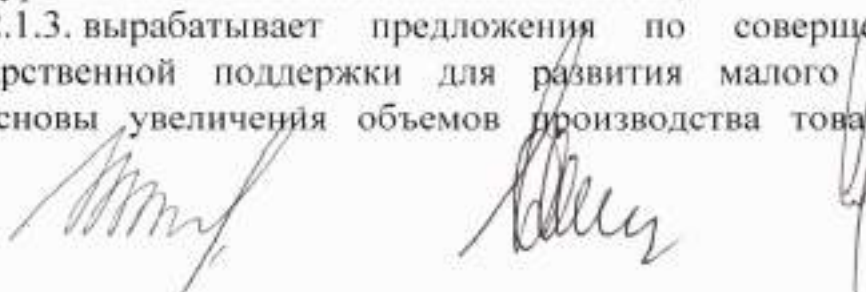 .1.3. вырабатывает предложения по соверше
рственной поддержки для развития малого
сновы увеличения объемов производства това